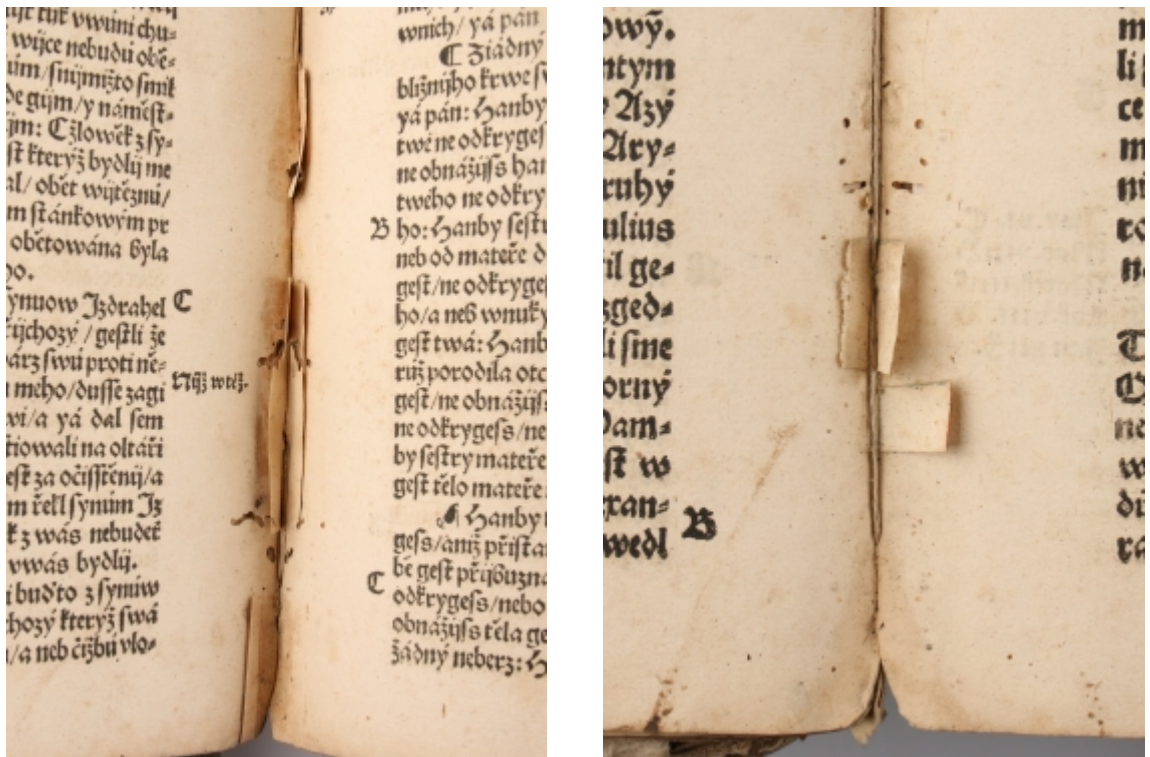 wijce nebudú obě⸗
de gijm/y náměst⸗
ijm: Čžlowěk z sy⸗
st kterýž bydlij me
al/ obět wijtěznú/
m stánkowým pr
obětowána byla
ho.
synuow Jzdrahel
C
přijchozý / gestli že
twárz swú proti ně⸗
meho/dusse zagi
Nijž wtěž.
wi/a yá dal sem
tiowali na oltáři
est za očisstěnij/a
m řekl synům Jz
k z wás nebudeť
vwás bydlij.
buďto z synuw
chozý kterýž swá
/a neb čižbú vlo⸗
wnich/ yá pán
C Ziádný
bližnijho krwe sw
yá pán: Hanby
twé ne odkryges
ne obnážijss han
tweho ne odkry
B
ho: Hanby sest
neb od mateře d
gest/ne odkryge
ho/a neb wnuky
gest twá: Hanb
rúž porodila otc
gest/ne obnážijs
ne odkrygess/ne
by sestry mateře
gest tělo mateře
Hanby
gess/aniž přista
bě gest přijbuzna
C
odkrygess/nebo
obnážijss těla ge
žádný neberz: H
owý.
ntym
Azý
Ary⸗
ruhý
ulius
il ge⸗
zged⸗
li sme
orný
Dam⸗
st w
xan⸗
B
wedl
m
li
ce
m
ni
ro
n
T
ne
w
dú
ra